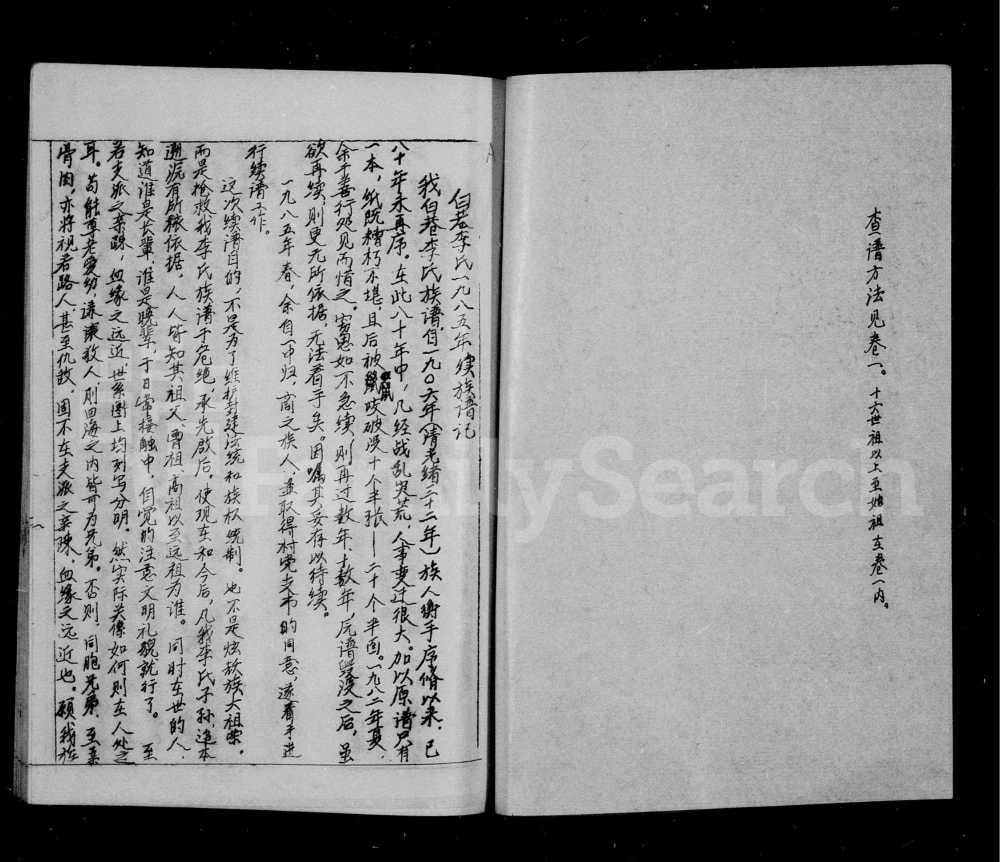 查谱方法见卷一。十六世祖以上至始祖在卷一内。
伯巷李氏一九八五年续族谱记
我伯巷李氏族谱,自一九〇六年(清光绪三十二年)族人衡手序修以来,已
八十年未再序。在此八十年中,几经战乱灾荒,人事变迁很大。加以原谱只有
一本,纸既糟朽不堪,且后被鼠咬破没十个半张——二十个半面。一九八二年夏,
余于善行处见而惜之。窃思如不急续,则再过数年、十数年,原谱湮没之后,虽
欲再续,则更无所依据,无法着手矣。因嘱其妥存以待续。
一九八五年春,余自一中归,商之族人,并取得村党支部的同意,遂着手进
行续谱工作。
这次续谱目的,不是为了维护封建法统和族权统制。也不是炫敖族大祖荣。
而是抢救我李氏族谱于危绝,承先启后。使现在和今后,凡我李氏子孙,追本
溯源有所稼依据,人人皆知其祖父、曾祖、高祖以至远祖为谁。同时在世的人,
知道谁是长辈,谁是晚辈,于日常接触中,自觉的注意文明礼貌就行了。至
若支派之亲疏,血缘之远近,世系图上均列写分明。然实际关系如何则在人处之
耳。苟能尊老爱幼,谦衷教人,则四海之内皆可为兄弟。否则,同胞兄弟,至亲
骨肉,亦将视若路人,甚至仇敌,固不在支派之亲疎,血缘之远近也。愿我族